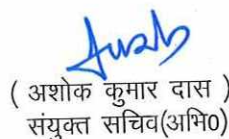 ( अशोक कुमार दास )
संयुक्त सचिव(अभि0)